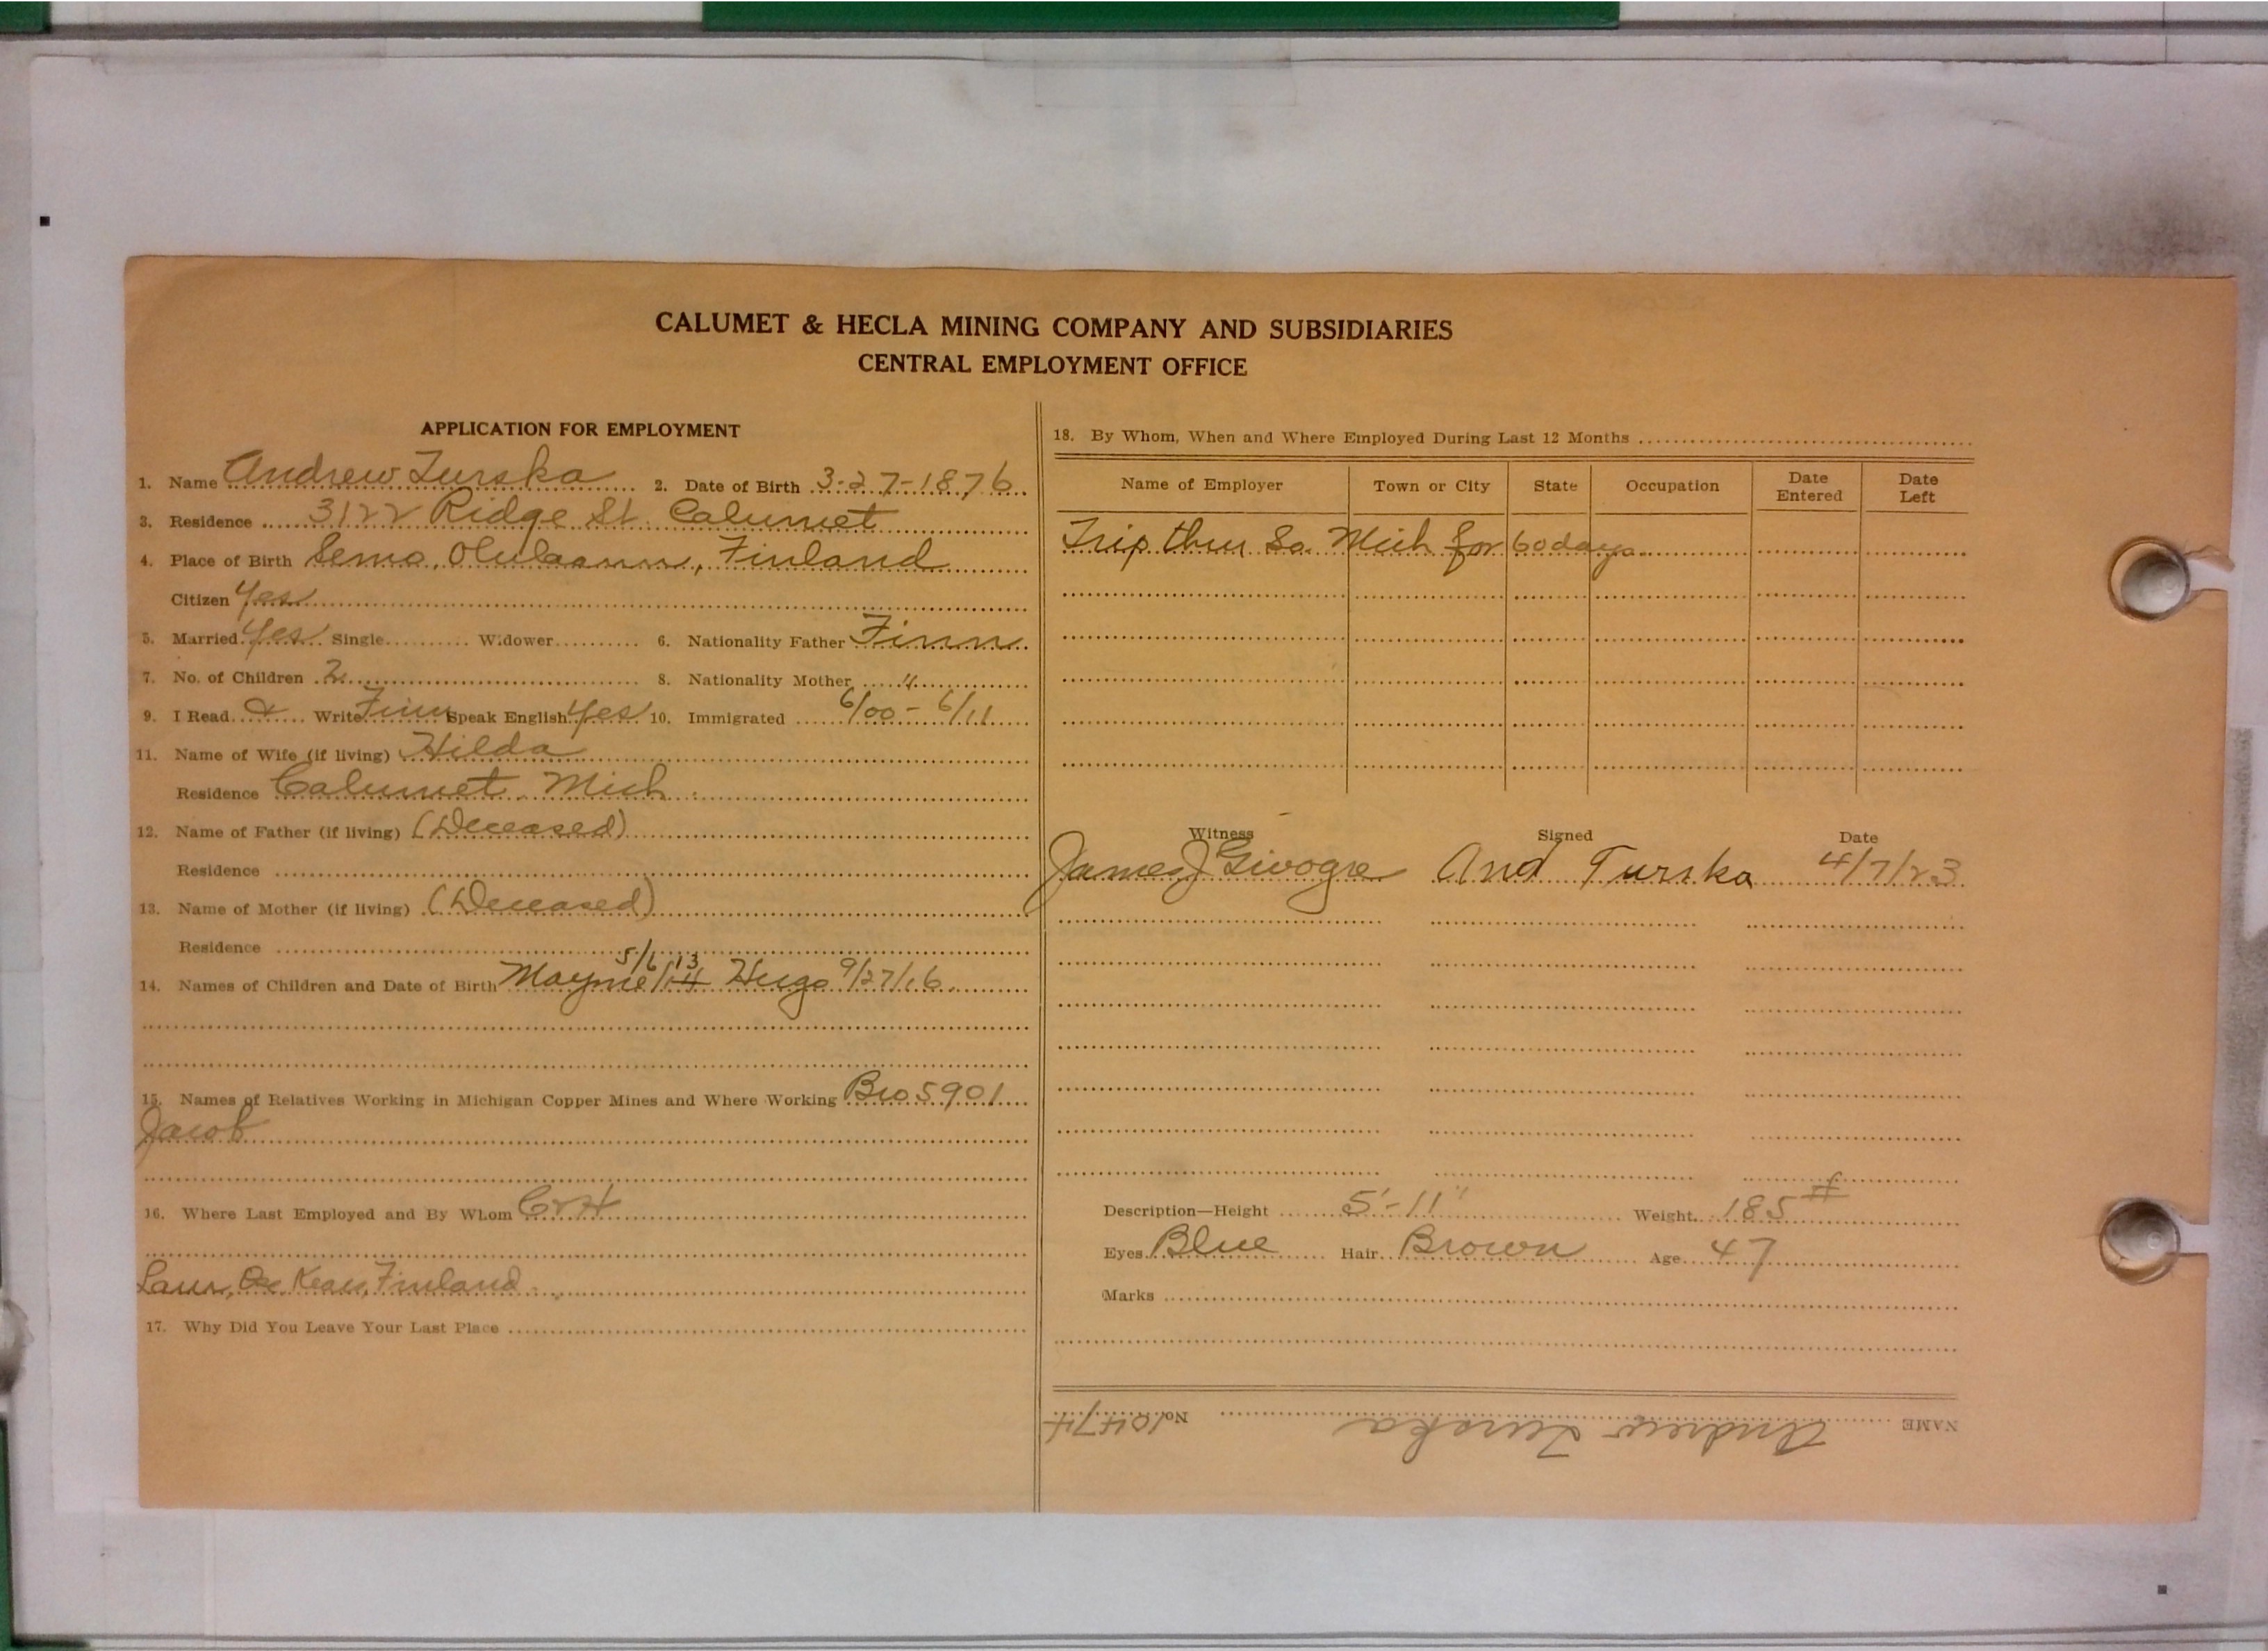 CALUMET & HECLA MINING COMPANY AND SUBSIDIARIES
CENTRAL EMPLOYMENT OFFICE
APPLICATION FOR EMPLOYMENT
1. Name Andrew Turska 2. Date of Birth 3-27-1876
3. Residence 3122 Ridge St. Calumet
4. Place of Birth Simo, Finland
Citizen Yes
5. Married Yes Single Widower 6. Nationality Father Finn
7. No. of Children 2 8. Nationality Mother "
9. I Read & Write Finn Speak English Yes 10. Immigrated 6/00 - 6/11
11. Name of Wife (if living) Hilda
Residence Calumet Mich
12. Name of Father (if living) (Deceased)
Residence
13. Name of Mother (if living) (Deceased)
Residence
5/6/13
14. Names of Children and Date of Birth Mayme Hugo 9/27/16
15. Names of Relatives Working in Michigan Copper Mines and Where Working Bro 5901
Jacob
16. Where Last Employed and By Whom C & H
Finland
17. Why Did You Leave Your Last Place
18. By Whom, When and Where Employed During Last 12 Months
Name of Employer Town or City State Occupation Date Entered Date Left
Trip thru So. Mich for 60 days
Witness Signed Date
James J And Turska 4/7/23
Description—Height 5'-11" Weight 185 #
Eyes Blue Hair Brown Age 47
Marks
NAME Andrew Turska No. 10474